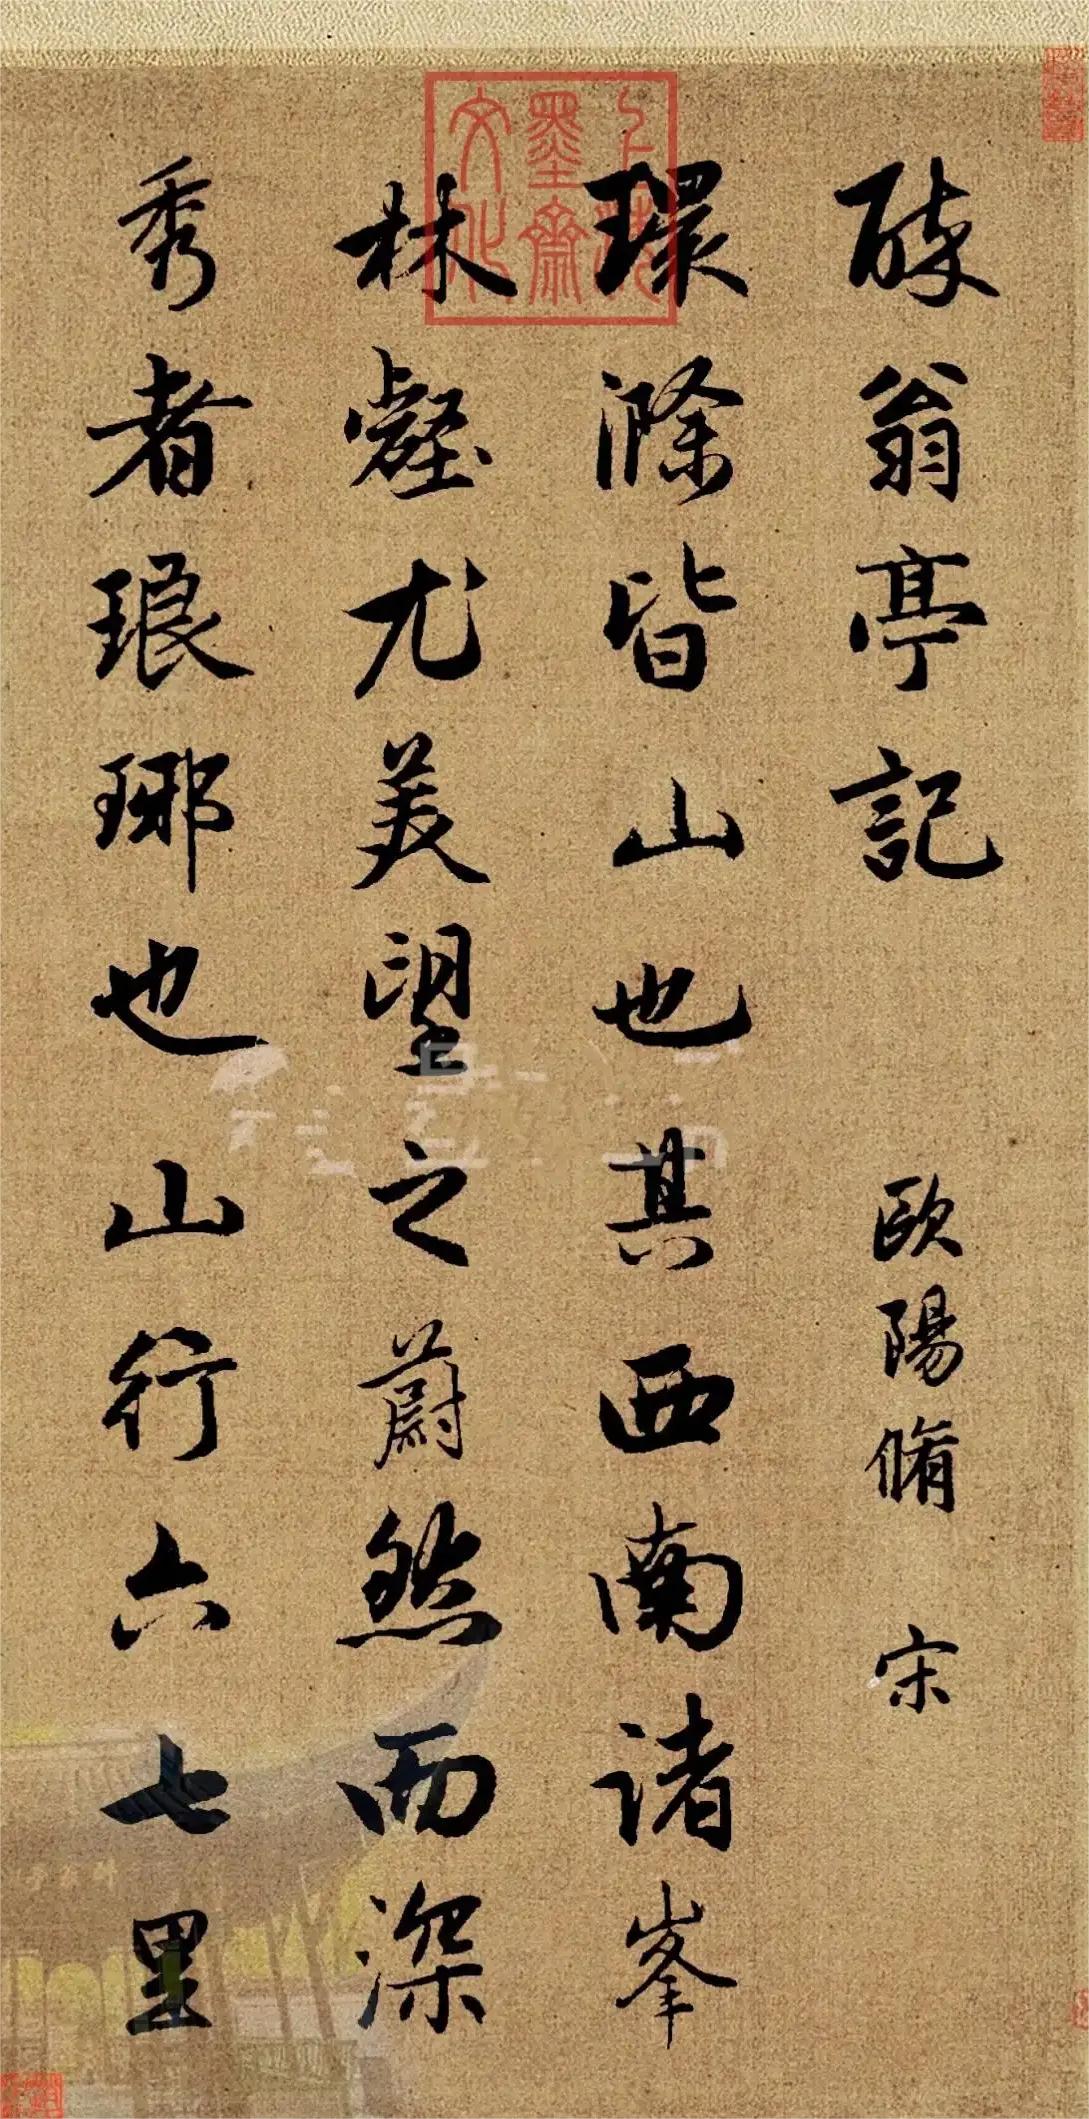 醉翁亭記 歐陽脩 宋
環滁皆山也其西南諸峯
林壑尤美望之蔚然而深
秀者琅琊也山行六七里